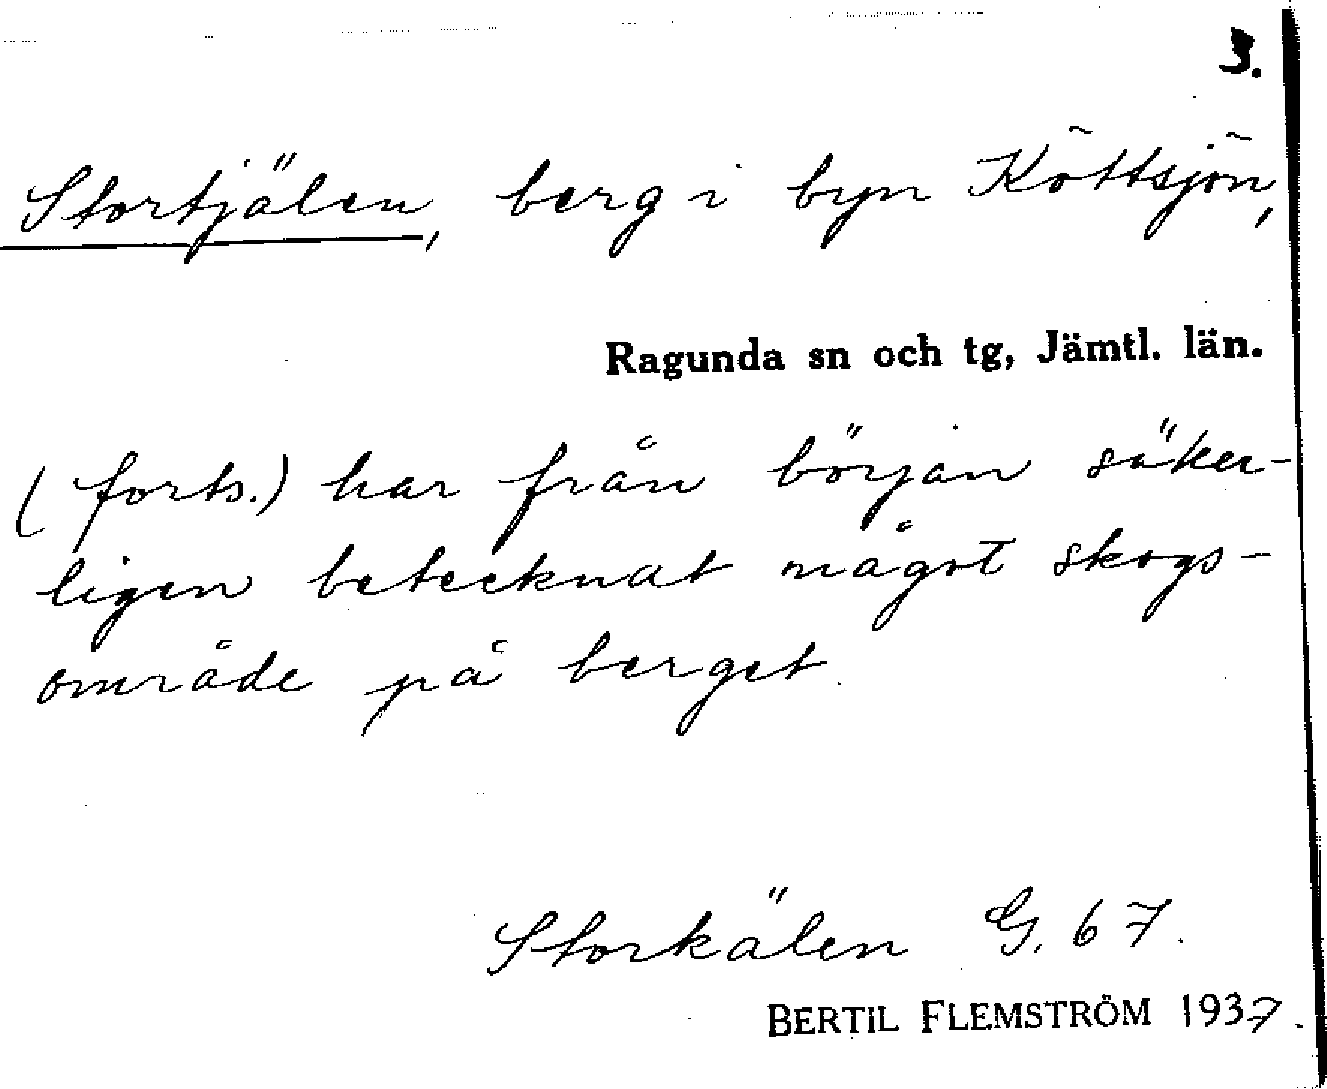 3.
Stortjälen, berg i byn Köttsjön,
Ragunda sn och tg, Jämtl. län.
(forts.) har från början säker-
ligen betecknat något skogs-
område på berget.
Storkälen G. 67.
BERTIL FLEMSTRÖM 1937.